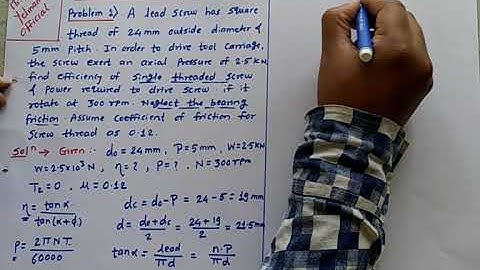 Official
Problem 1) A lead screw has square
thread of 24mm outside diameter &
5mm Pitch. In order to drive tool carriage,
the screw exert an axial Pressure of 2.5 KN,
find efficiency of single threaded screw
& Power required to drive screw if it
rotate at 300 rpm. Neglect the bearing
friction. Assume coefficient of friction for
screw thread as 0.12.
Solⁿ → Given :- do = 24mm, P = 5mm, W = 2.5KN
W = 2.5×10³ N, η = ?, P = ?. N = 300 rpm
T₂ = 0, μ = 0.12
η = tanα / tan(α+ϕ)
dc = do - P = 24 - 5 = 19mm
d = do+dc / 2 = 24+19 / 2 = 21.5mm
P = 2πNT / 60000
tanα = lead / πd = n.P / πd